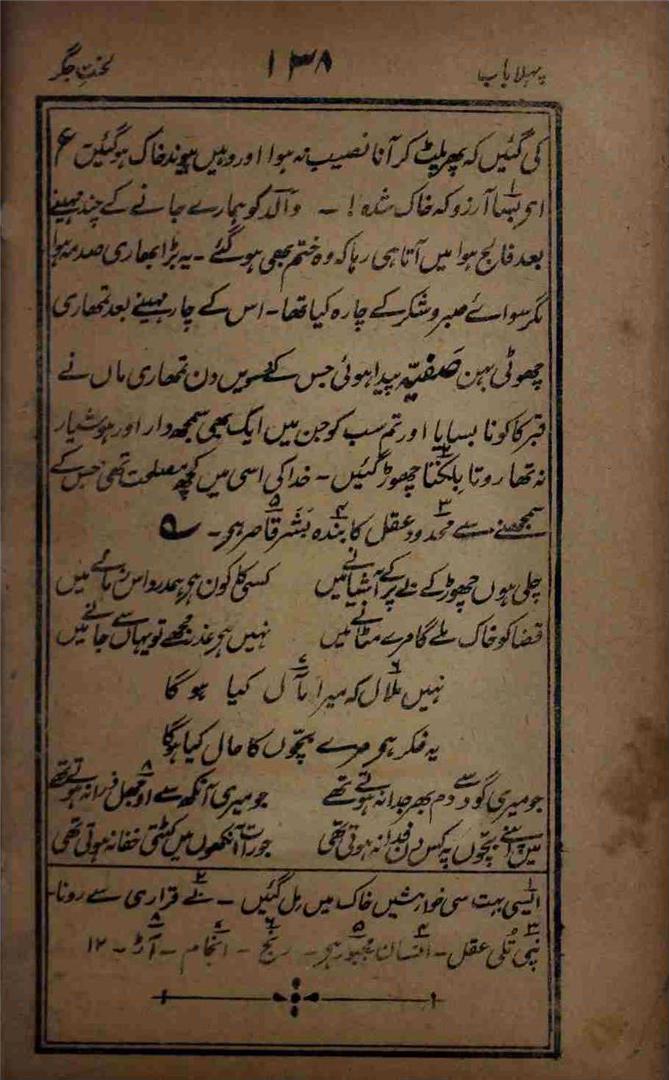 پہلا باب ۱۳۸ لختِ جگر
کی گئیں کہ پھر پلٹ کر آنا نصیب نہ ہوا اور وہیں پیوند خاک ہو گئیں ع
اے بسا آرزو کہ خاک شدہ! ۔ والد کو ہمارے جانے کے چند مہینے
بعد فالج ہوا میں آتا ہی رہا کہ وہ ختم بھی ہو گئے ۔ یہ بڑا بھاری صدمہ ہوا
مگر سوائے صبر و شکر کے چارہ کیا تھا ۔ اس کے چار مہینے بعد تمھاری
چھوٹی بہن صفیہ پیدا ہوئی جس کے دسویں دن تمھاری ماں نے
قبر کا کونا بسایا اور تم سب کو جن میں ایک بھی سمجھ دار اور ہوشیار
نہ تھا روتا بلکتا چھوڑ گئیں ۔ خدا کی اسی میں کچھ مصلحت تھی جس کے
سمجھنے سے محدود عقل کا بندہ بشر قاصر ہے ۔
چلی ہوں چھوڑ کے بے پر کے آشیانے میں کسی کا کون ہے ہمدرد اس زمانے میں
قضا کو خاک ملے گا مرے مٹانے میں نہیں ہے عذر مجھے تو یہاں سے جانے میں
نہیں ملال کہ میرا مآل کیا ہو گا
یہ فکر ہے مرے بچّوں کا حال کیا ہوگا
جو میری گود سے دم بھر جدا نہ ہوتے تھے جو میری آنکھ سے اوجھل ذرا نہ ہوتے تھے
میں اپنے بچّوں پہ کس دن فدا نہ ہوتی تھی جو رات آنکھوں میں کٹتی خفا نہ ہوتی تھی
۱ ایسی بہت سی خواہشیں خاک میں مل گئیں ۔ ۲ بے قراری سے رونا ۔
۳ نپی تُلی عقل ۔ ۴ انسان ۵ مجبور ہے ۔ ۶ رنج ۔ ۷ انجام ۔ ۸ آڑ ۔ ۱۲